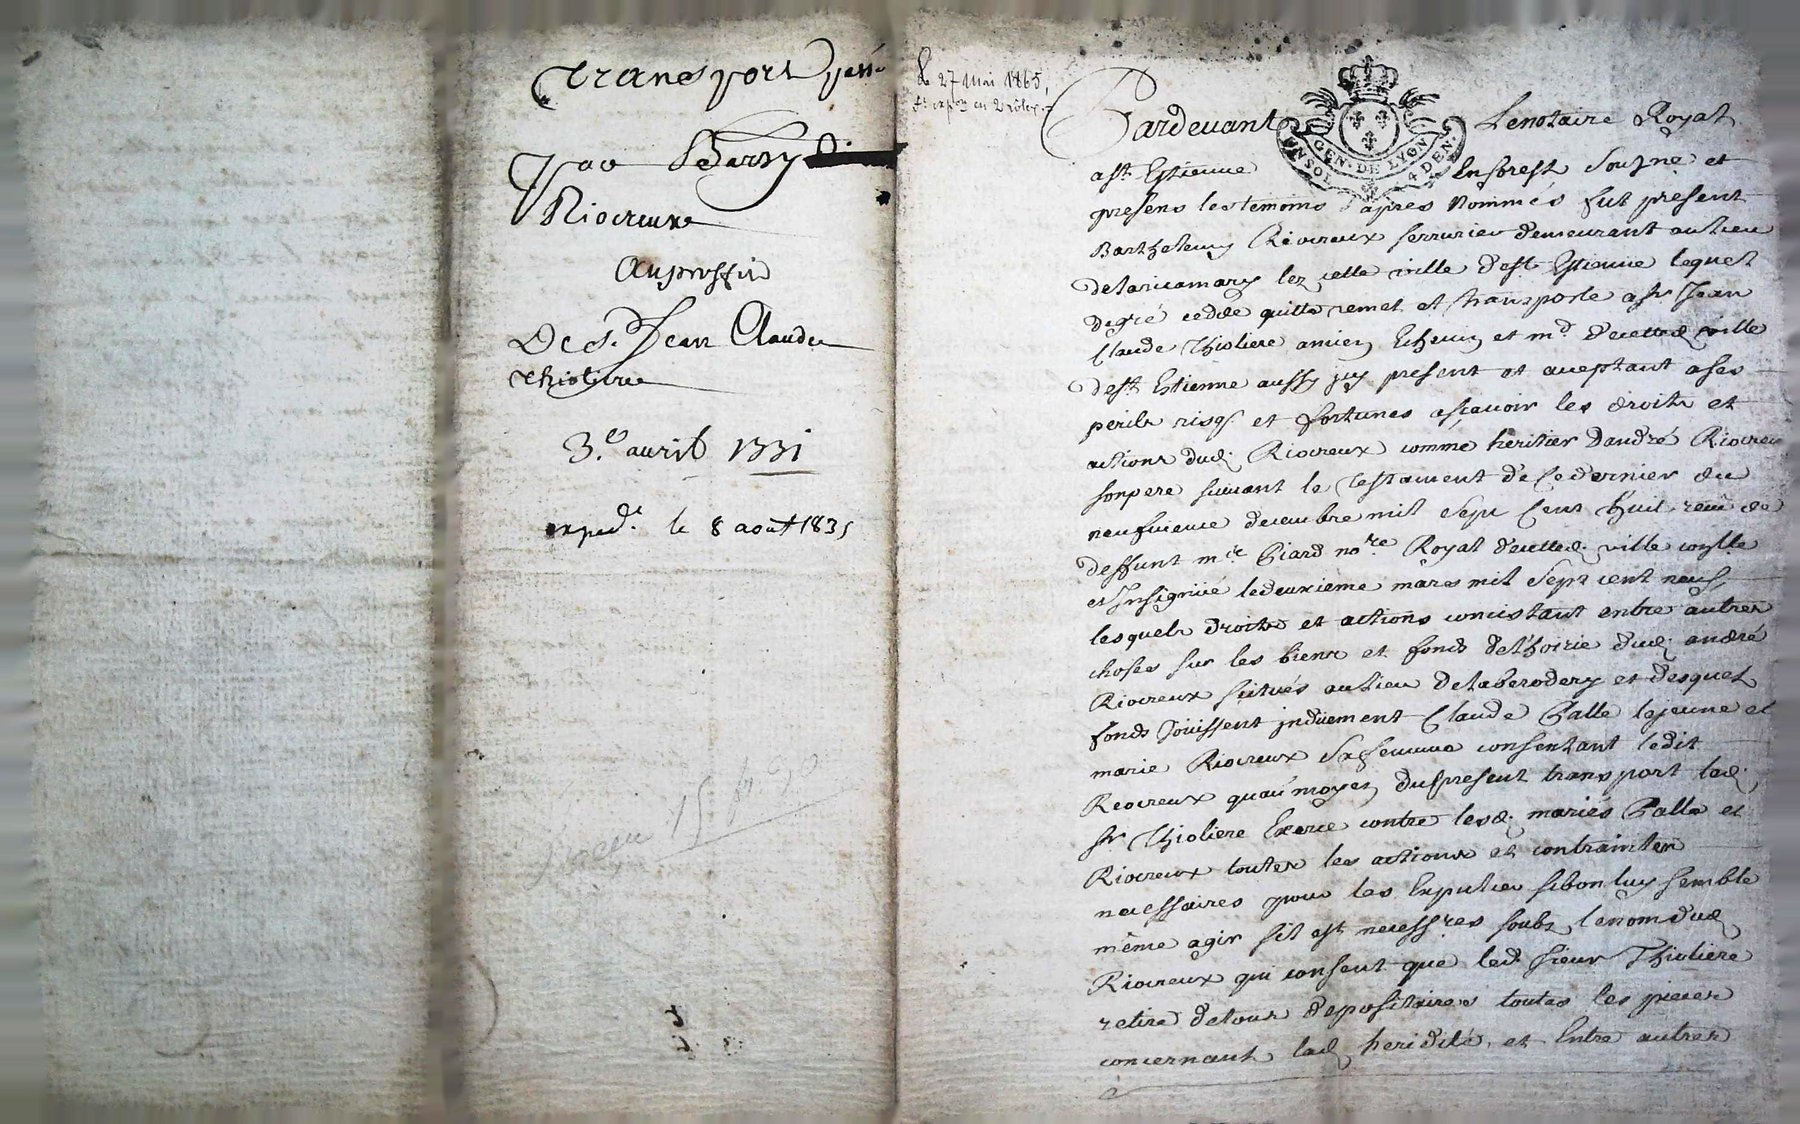 Transport passé
Par Barthy
Riocreux
Au proffit
De Sr. Jean Claude
Thioliere
3.e avril 1731
exped.e le 8 août 1835
Le 27 Mai 1865,
Pardevant Lenotaire Royal
GEN. DE LYON
4 DEN.
a st. Estienne Enforest Sousne et
presens les temoins d'apres Nommés fut present
Barthelemy Riocreux serrurier demeurant au lieu
delaricamary lez cette ville dest Estienne lequel
degré cedde quitte remet et transporte a sr Jean
Claude Thioliere ancien Echevin et md d'cetted ville
dest Estienne aussy jcy present et aceptant a ses
perils risq et fortunes asçavoir les droits et
actions dud. Riocreux comme heritier D'andré Riocreux
sonpere suivant le testament de Cedernier du
neufvieme decembre mil Sept Cent huit receu de
deffunt mre Piard nore Royal d'cetted. ville
et Insignüé ledeuxieme mars mil Sept cent neuf,
lesquels droits et actions concistant entre autres
choses sur les biens et fonds del'hoirie dud. andré
Riocreux scitués aulieu Delaberodery et desquels
fonds Joüissent jndüement Claude Palle lejeune et
marie Riocreux Safemme consentant ledit
Reocreux quau moyen dupresent transport led.
sr Thioliere Exerce contre lesd. mariés Palle et
Riocreux toutes les actions et contraintes
necessaires pour les Expulser sibon luy semble
même agir sil est necessres soubz lenomdud
Riocreux qui consent que led. sieur Thioliere
retire detous depositaires toutes les pieces
concernant lad heridité, et Entre autres